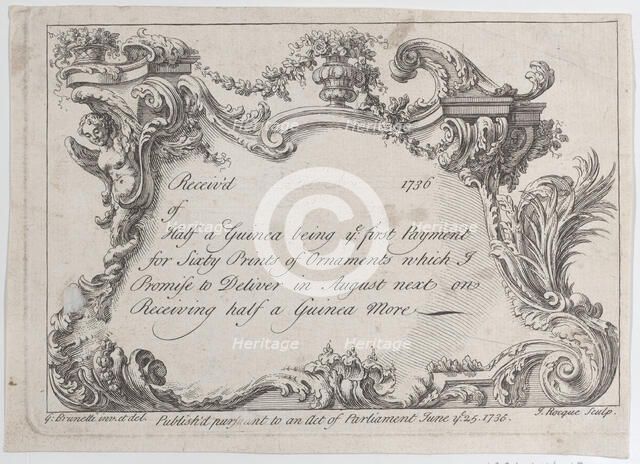 Receiv'd 1736
of
Half a Guinea being yͤ. first Payment
for Sixty Prints of Ornaments which I
Promiſe to Deliver in August next on
Receiving half a Guinea More
G: Brunetti inv. et del.
Publish'd pursuant to an Act of Parliament June yͤ. 25. 1736.
J. Rocque Sculp.
Heritage
Heritage
Heritage
Heritage